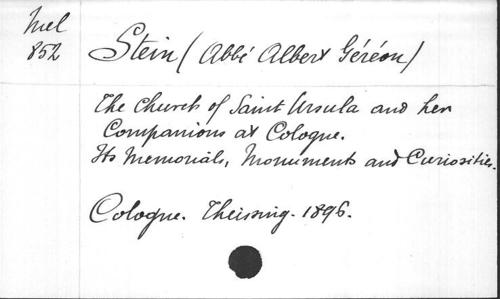 Mel
852
Stein (Abbé Albert Géréon)
The Church of Saint Ursula and her
Companions at Cologne.
Its Memorials, Monuments and Curiosities.
Cologne. Theissing. 1896.